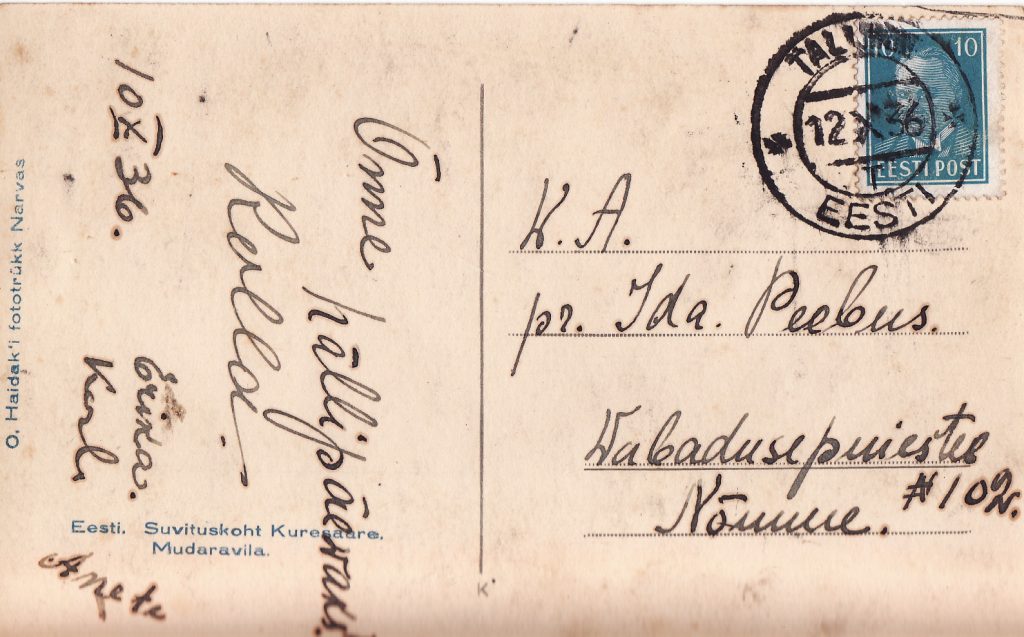 10 X 36.
Õnne hällipäevaks!
Erika.
Karl
Aneta
O. Haidak'i fototrükk Narvas
Eesti. Suvituskoht Kuresaare,
Mudaravila.
K
10 10
EESTI POST
TALLINN
12 X 36
EESTI
K. A.
pr. Ida. Peebus.
Wabadusepuiestee
#102.
Nõmme.